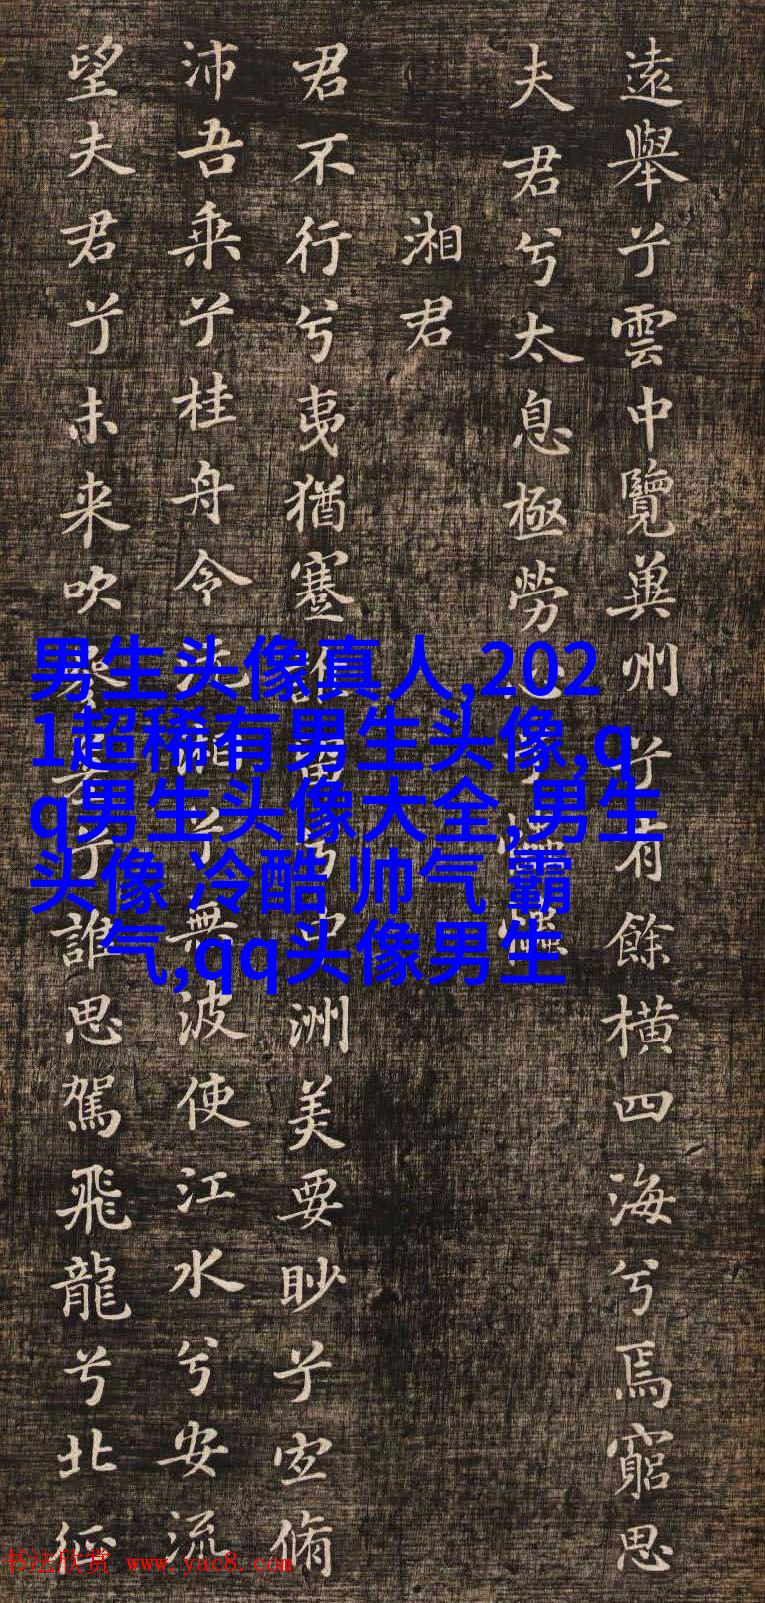 遠舉兮雲中覽兾州兮有餘橫四海兮焉窮思
夫君兮太息極勞
湘君
君不行兮夷猶蹇洲美要眇兮宜脩
沛吾乘兮桂舟令兮無波使江水兮安流
望夫君兮未来吹兮誰思駕飛龍兮北征
男生头像真人,202
1超稀有男生头像,q
q男生头像大全,男生
头像 冷酷 帅气 霸
气,qq头像男生
书法欣赏 www.yac8.com